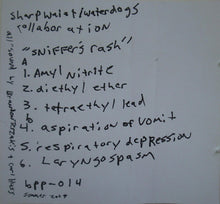 sharpwaist/waterdogs
collaboration
"sniffer's rash"
A
1. Amyl Nitrite
2. diethyl ether
3. tetraethyl lead
b
4. aspiration of vomit
5. respiratory depression
6. Laryngospasm
bpp-014
summer
all sound by